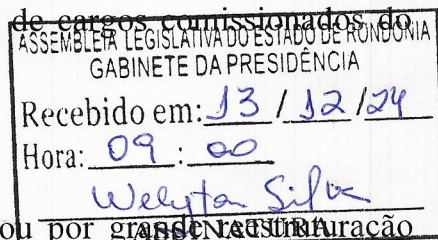 de cargos comissionados do
ASSEMBLEIA LEGISLATIVA DO ESTADO DE RONDÔNIA
GABINETE DA PRESIDÊNCIA
Recebido em: 13 / 12 / 24
Hora: 09 : 00
Welyton Silva
ASSINATURA
ou por grande reestruturação